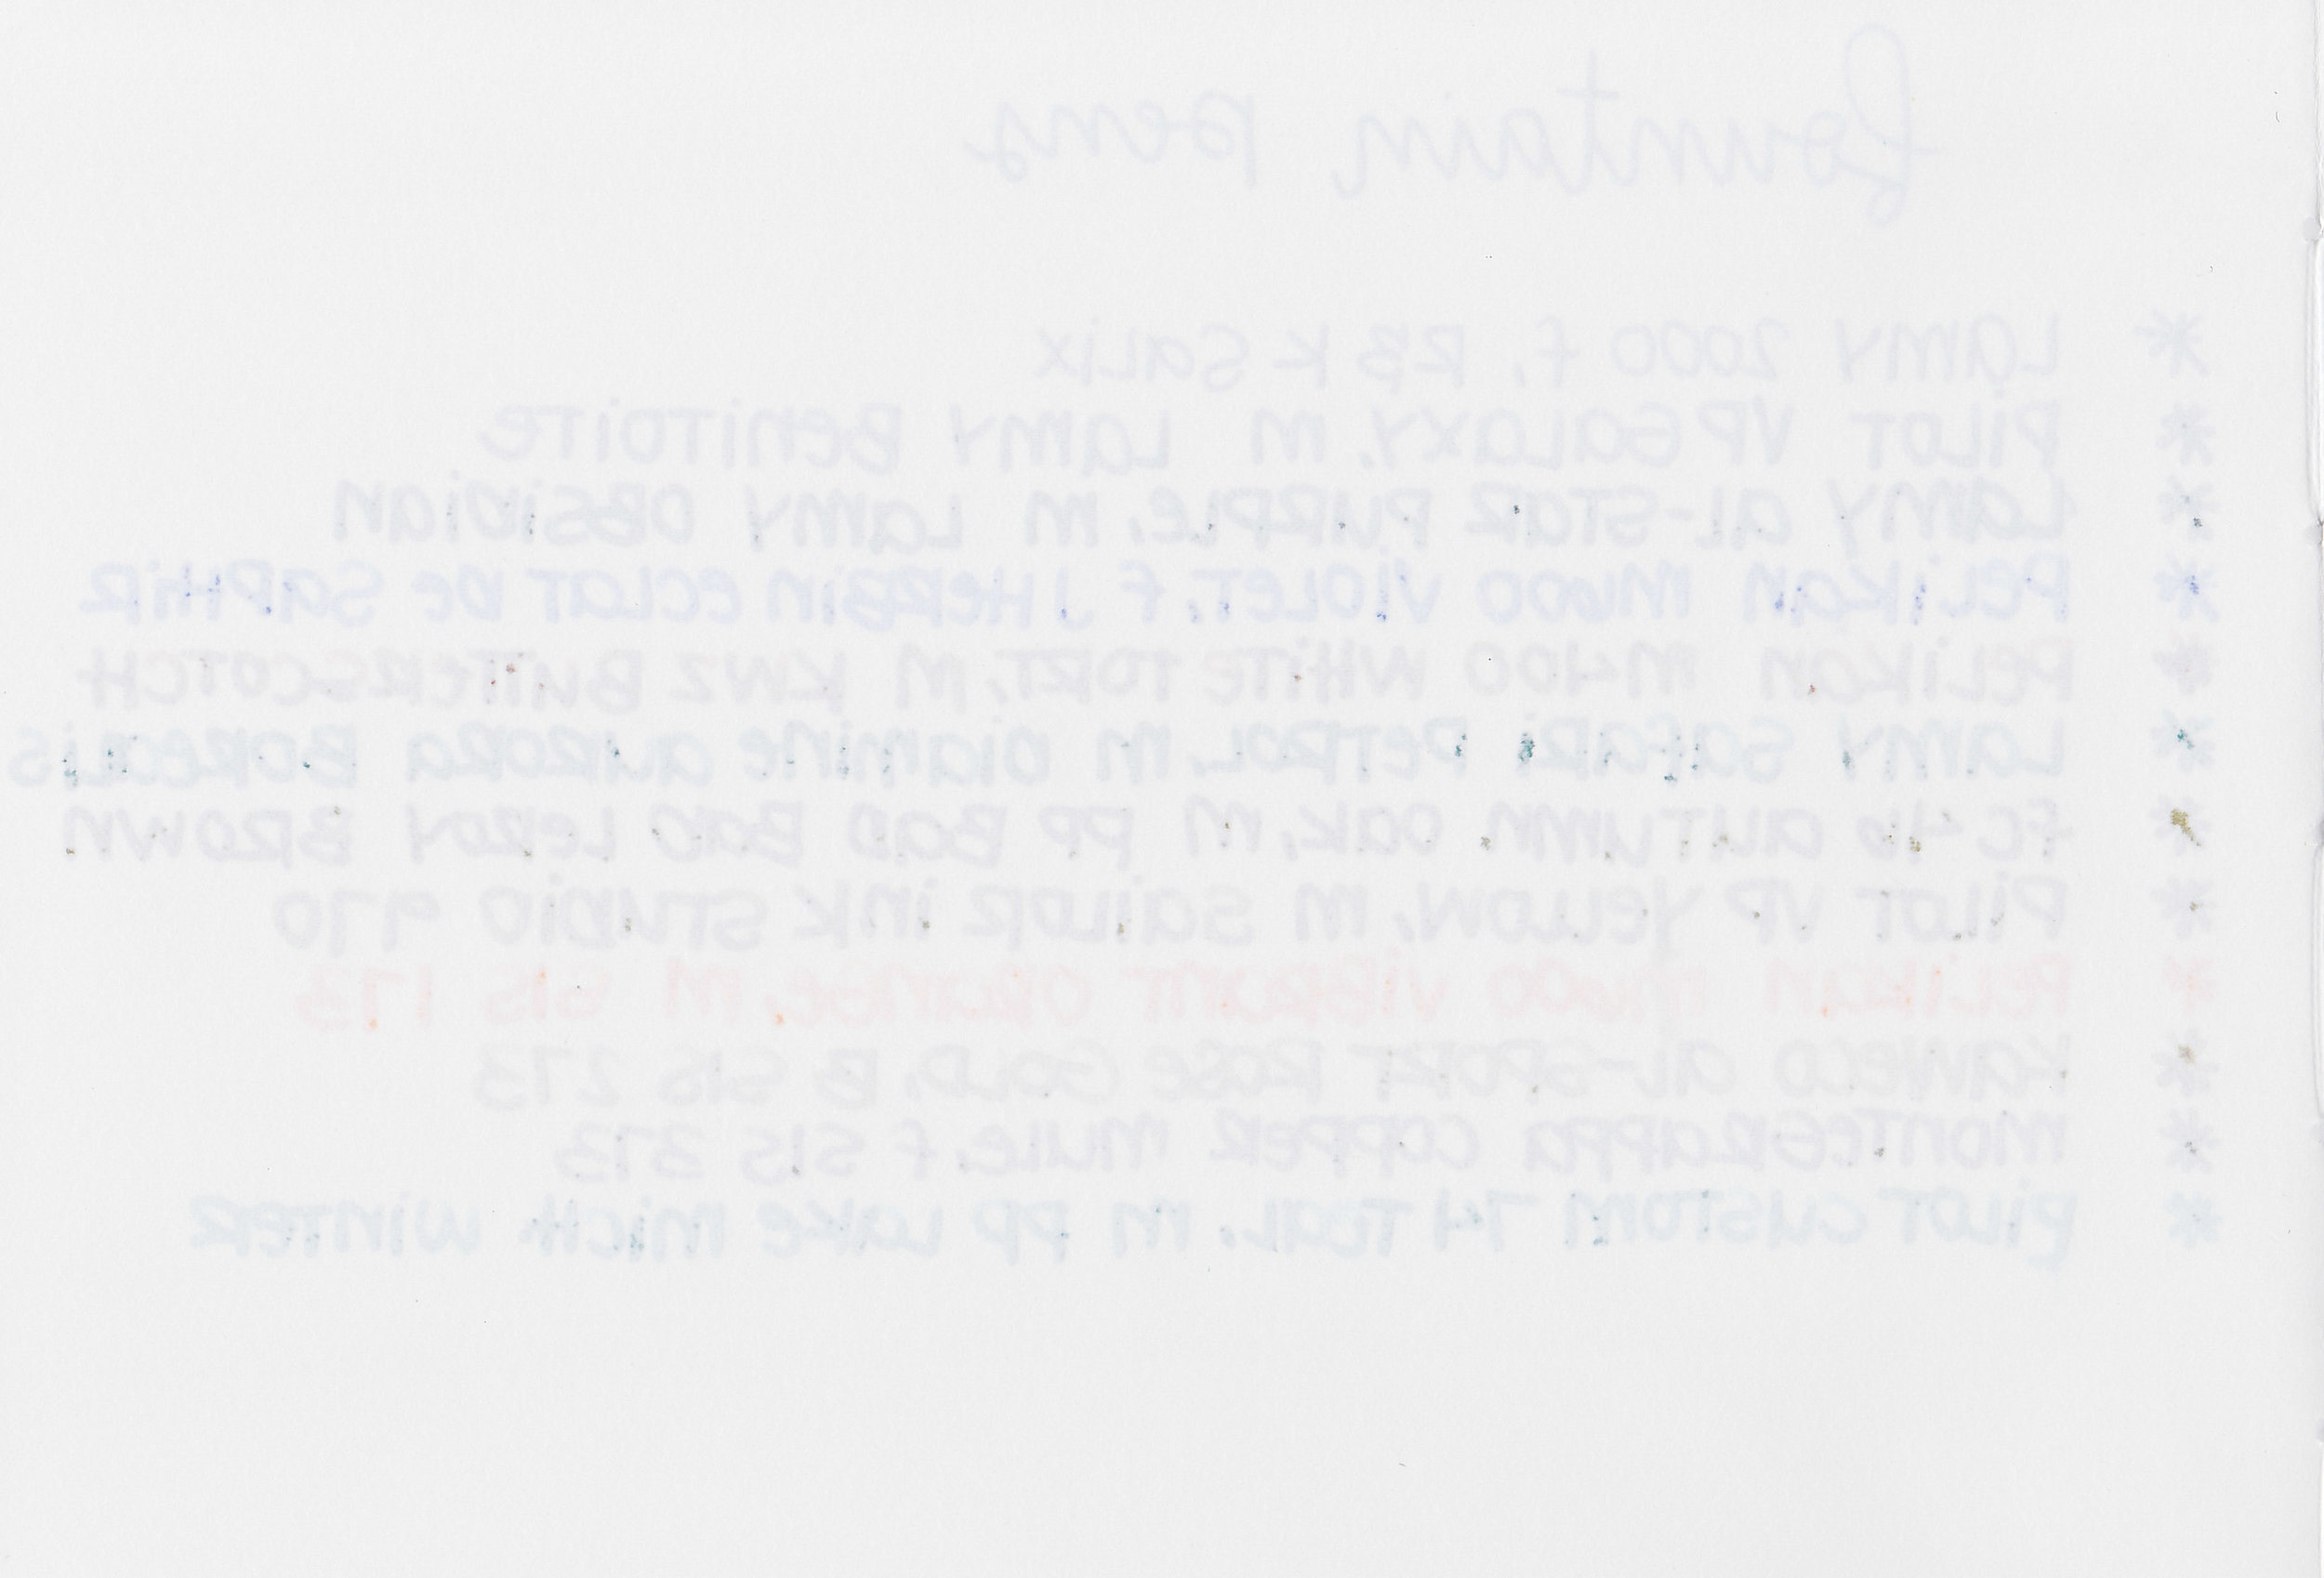 fountain pens
* Lamy 2000 F, R&K Salix
* Pilot VP Galaxy, M Lamy Benitoite
* Lamy Al-Star Purple, M Lamy Obsidian
* Pelikan M600 Violet, F J Herbin Eclat de Saphir
* Pelikan M400 White Tort, M KWZ Butterscotch
* Lamy Safari Petrol, M Diamine Aurora Borealis
* FC 46 Autumn Oak, M PP Bad Bad Leroy Brown
* Pilot VP Yellow, M Sailor Ink Studio 970
* Pelikan M600 Vibrant Orange, M SIS 173
* Kaweco Al-Sport Rose Gold, B SIS 273
* Montegrappa Copper Mule, F SIS 373
* Pilot Custom 74 Teal, M PP Lake Mich Winter